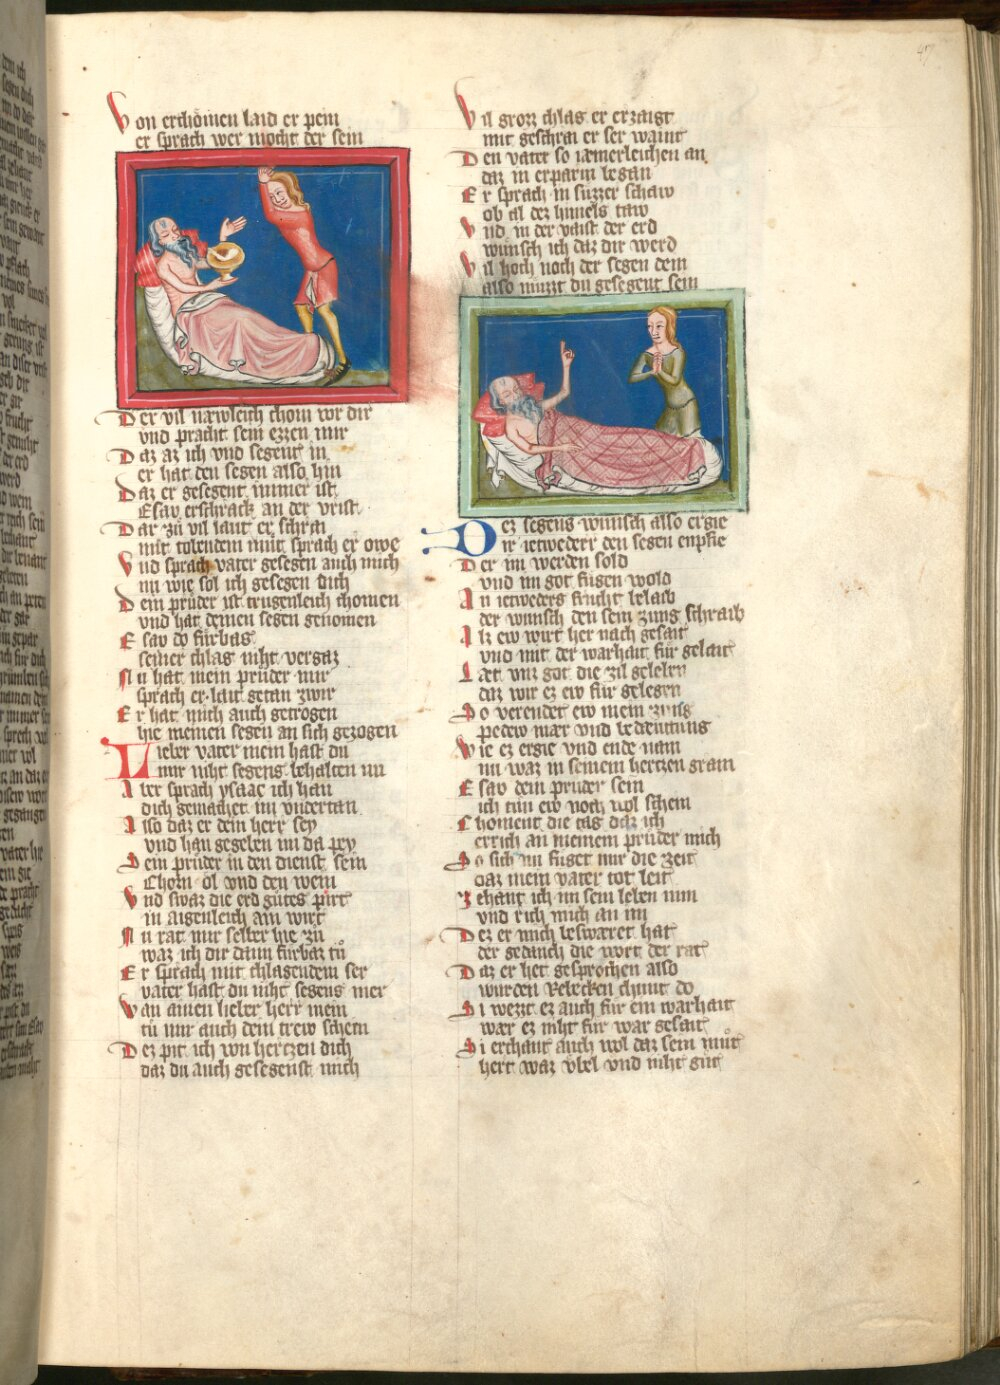 Von erchomen laid er pein
er sprach wer mocht der sein
Der vil næwleich chom vor dir
vnd pracht sein ezzen mir
Daz az ich vnd segent in
er hat den segen also hin
Daz er gesegent immer ist
Esav erschrack an der vrist
Dar zů vil laut er schrai
mit tobendem můt sprach er owe
Vnd sprach vater gesegen auch mich
nu wie sol ich gesegen dich
Dein průder ist trugenleich chomen
vnd hat deinen segen genomen
Esav do fůrbaz
seiner chlag niht vergaz
Nu hat mein průder mir
sprach er lait getan zwir
Er hat mich auch getrogen
hie meinen segen an sich gezogen
Lieber vater mein hast du
mir niht segens behalten nu
Aber sprach ysaac ich han
dich gemachet im vndertan
Also daz er dein herr sey
vnd han gegeben im da pey
Dein průder in den dienst sein
Chorn ol vnd den wein
Vnd swaz die erd gůtes pirt
in aigenleich ain wirt
Nu rat mir selber hie zů
waz ich dir dann fůrbaz tů
Er sprach mit chlagendem ser
vater hast du niht segens mer
Wan ainen lieber herr mein
tů mir auch dein trew schein
Dez pit ich von hertzen dich
daz du auch gesegenst mich
Vil grozz chlag er erzaigt
mit geschrai er ser waint
Den vater so iæmerleichen an
daz in erparm began
Er sprach in sůzzer schaw
ob al dez himels taw
Vnd in der vaist der erd
wunsch ich daz dir werd
Vil hoch noch der segen dein
also můzzt du gesegent sein
Dez segens wunsch also ergie
ir ietwederr den segen enpfie
Der im werden sold
vnd im got fůgen wold
An ietweders frucht belaib
der wunsch den sein zung schraib
Alz ew wirt her nach gesait
vnd mit der warhait fůr gelait
Læt vnz got die zil geleben
daz wir ez ew fůr gelegen
So verendet ew mein zung
pedew mær vnd bedæutung
Wie ez ergie vnd ende nam
nu waz in seinem hertzen gram
Esav dem průder sein
ich tůn ew noch wol schein
Choment die tag daz ich
errich an meinem průder mich
So sich nu fůget mir die zeit
daz mein vater tot leit
Zehant ich im sein leben nim
vnd rich mich an im
Dez er mich beswæret hat
der gedanch die wort der rat
Daz er het gesprochen also
wurden Rebecken chunt do
Si wezzt ez auch fůr ein warhait
wær ez niht fůr war gesait
Si erchant auch wol daz sein můt
hert waz vbel vnd niht gůt